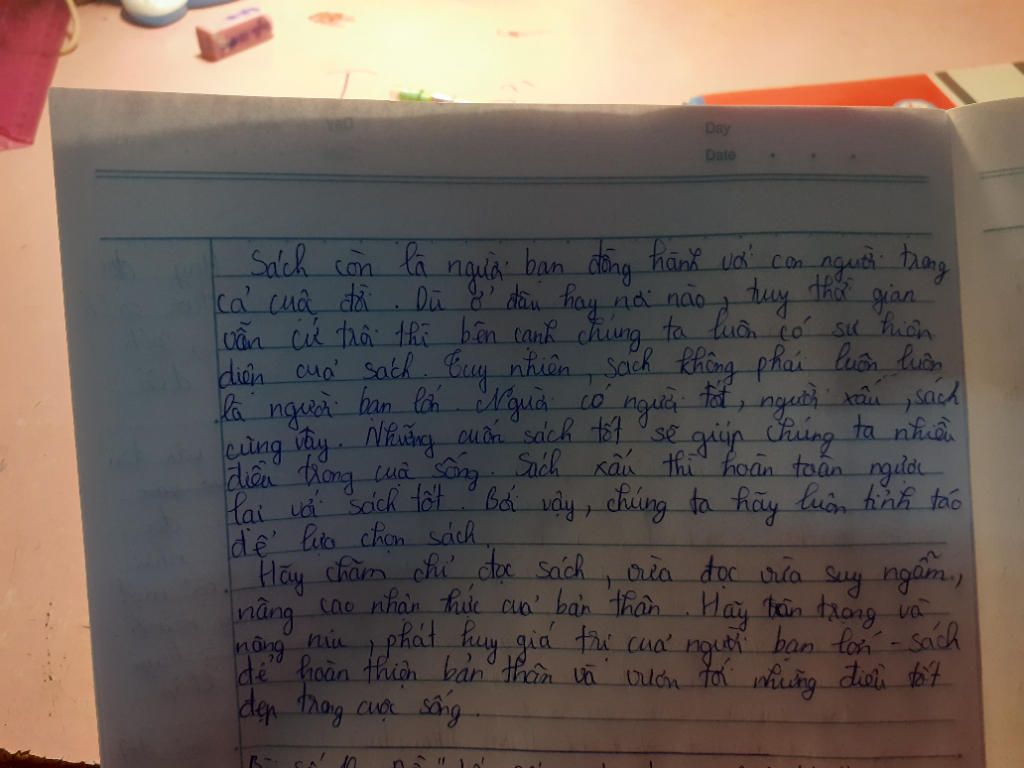 Day
Date
Sách còn là người bạn đồng hành với con người trong
cả cuộc đời. Dù ở đâu hay nơi nào, tuy thời gian
vẫn cứ trôi thì bên cạnh chúng ta luôn có sự hiện
diện của sách. Tuy nhiên, sách không phải luôn luôn
là người bạn lớn. Người có người tốt, người xấu, sách
cũng vậy. Những cuốn sách tốt sẽ giúp chúng ta nhiều
điều trong cuộc sống. Sách xấu thì hoàn toàn ngược
lại với sách tốt. Bởi vậy, chúng ta hãy luôn tỉnh táo
để lựa chọn sách
Hãy chăm chỉ đọc sách, vừa đọc vừa suy ngẫm,
nâng cao nhận thức của bản thân. Hãy trân trọng và
nâng niu, phát huy giá trị của người bạn lớn - sách
để hoàn thiện bản thân và vươn tới những điều tốt
đẹp trong cuộc sống.